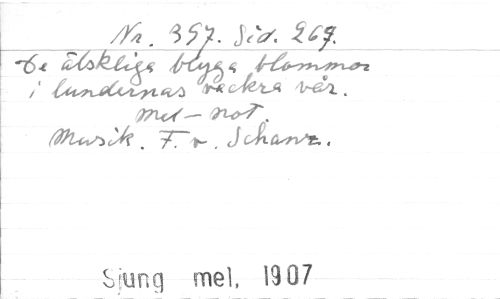 Nr. 397. Sid. 269.
De älskliga blyga blommor
i lundernas vackra vår.
mel-not.
Musik. F. v. Schanz.
Sjung mel, 1907